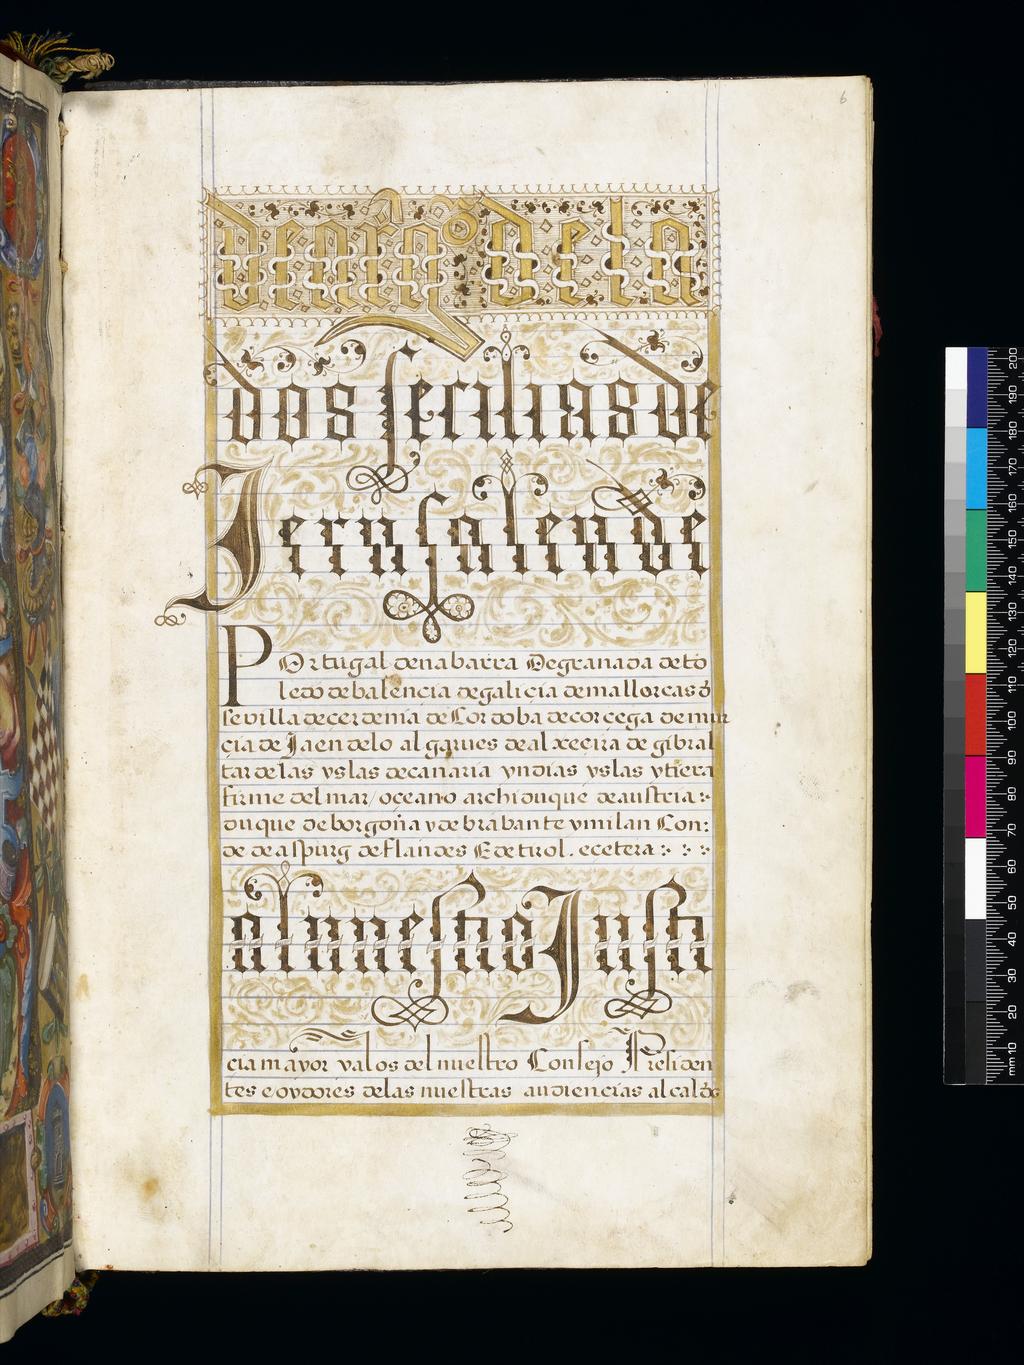 6
dearagº dela
dos seciliasde
Jerusalende
POrtugal denabarra Degranada deto
ledo debalencia degalicia demallorcas đ
sevilla decerdenia deCordoba decorcega demur
cia de Jaen delo algarues de alxecira de gibral
tar de las yslas decanaria yndias yslas ytiera
firme del mar/oceano archiduque deaustria
duque deborgoña y debrabante ymilan Con:
de deaspurg deflandes Edetirol. ecetera
alnuestro Justi
cia mayor yalos del nuestro Consejo Residen
tes eoydores delas nuestras audiencias alcaldes
mm 10 20 30 40 50 60 70 80 90 100 110 120 130 140 150 160 170 180 190 200